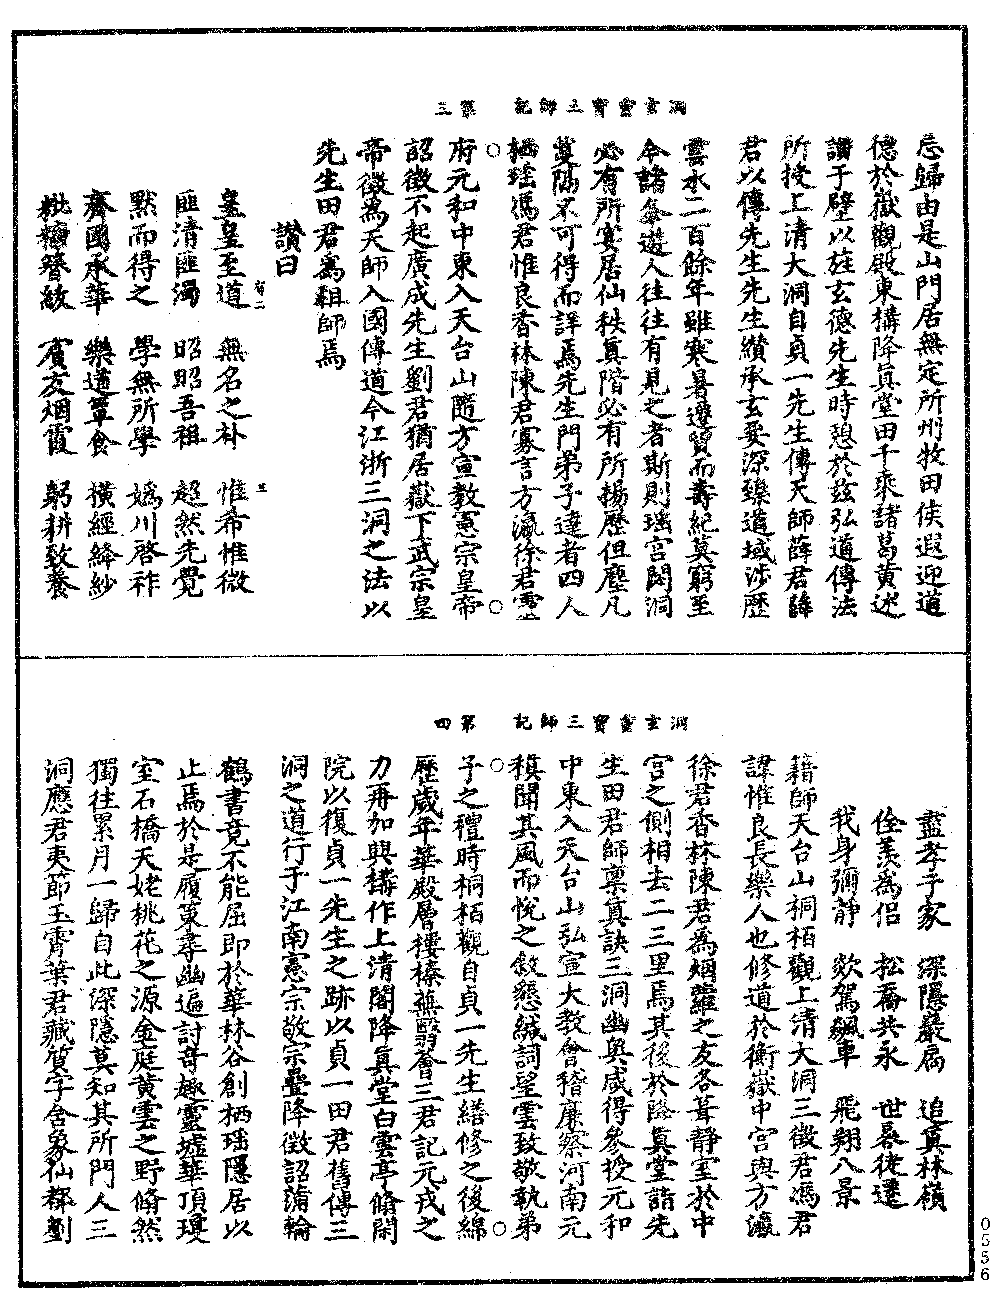 洞玄靈寶三師記　第三
忘歸由是山門居無定所州牧田侯遐迎道
德於嶽觀殿東構降真堂田千乘諸葛黃述
讚于壁以旌玄德先生時憩於兹弘道傳法
所授上清大洞自貞一先生傳天師薛君薛
君以傳先生先生纘承玄要深臻道域涉歷
雲水二百餘年雖寒暑遷貿而壽紀莫窮至
今諸無遊人往往有見之者斯則瑤宮閬洞
必有所宴居仙秩真階必有所揚歷但塵凡
敻隔不可得而詳焉先生門弟子達者四人
栖瑤馮君惟良香林陳君寡言方瀛徐君靈
府元和中東入天台山隨方宣教憲宗皇帝
詔徵不起廣成先生劉君猶居嶽下武宗皇
帝徵為天師入國傳道今江浙三洞之法以
先生田君為祖師焉
讚曰
皇皇至道　無名之朴　惟希惟微
匪清匪濁　昭昭吾祖　超然先覺
默而得之　學無所學　嬀川啓祚
齊國承華　樂道簞食　橫經絳紗
粃糠簪紱　賓友烟霞　躬耕致養
洞玄靈寶三師記　第四
盡孝于家　深隱巖扃　追真林嶺
佺羨為侣　松喬共永　世界徒遷
我身彌静　欻駕飆車　飛翔八景
籍師天台山桐栢觀上清大洞三徵君馮君
諱惟良長樂人也修道於衡嶽中宮與方瀛
徐君香林陳君為烟蘿之友各葺靜室於中
宮之側相去二三里焉其後於降真堂詣先
生田君師禀真訣三洞幽奥咸得參授元和
中東入天台山弘宣大教會稽廉察河南元
稹聞其風而悅之敘懇緘詞望雲致敬執弟
子之禮時桐栢觀自貞一先生繕修之後綿
歷歲年華殿層樓榛蕪翳薈三君記元戎之
力再加興構作上清閣降真堂白雲亭翛閑
院以復貞一先生之跡以貞一田君舊傳三
洞之道行于江南憲宗敬宗疊降徵詔蒲輪
鶴書竟不能屈即於華林谷創栖瑤隱居以
止焉於是屨策尋幽遍討竒趣靈墟華頂瓊
室石橋天姥桃花之源金庭黃雲之野翛然
獨往累月一歸自此深隱莫知其所門人三
洞應君夷節玉霄葉君藏質字含象仙都劉
0556